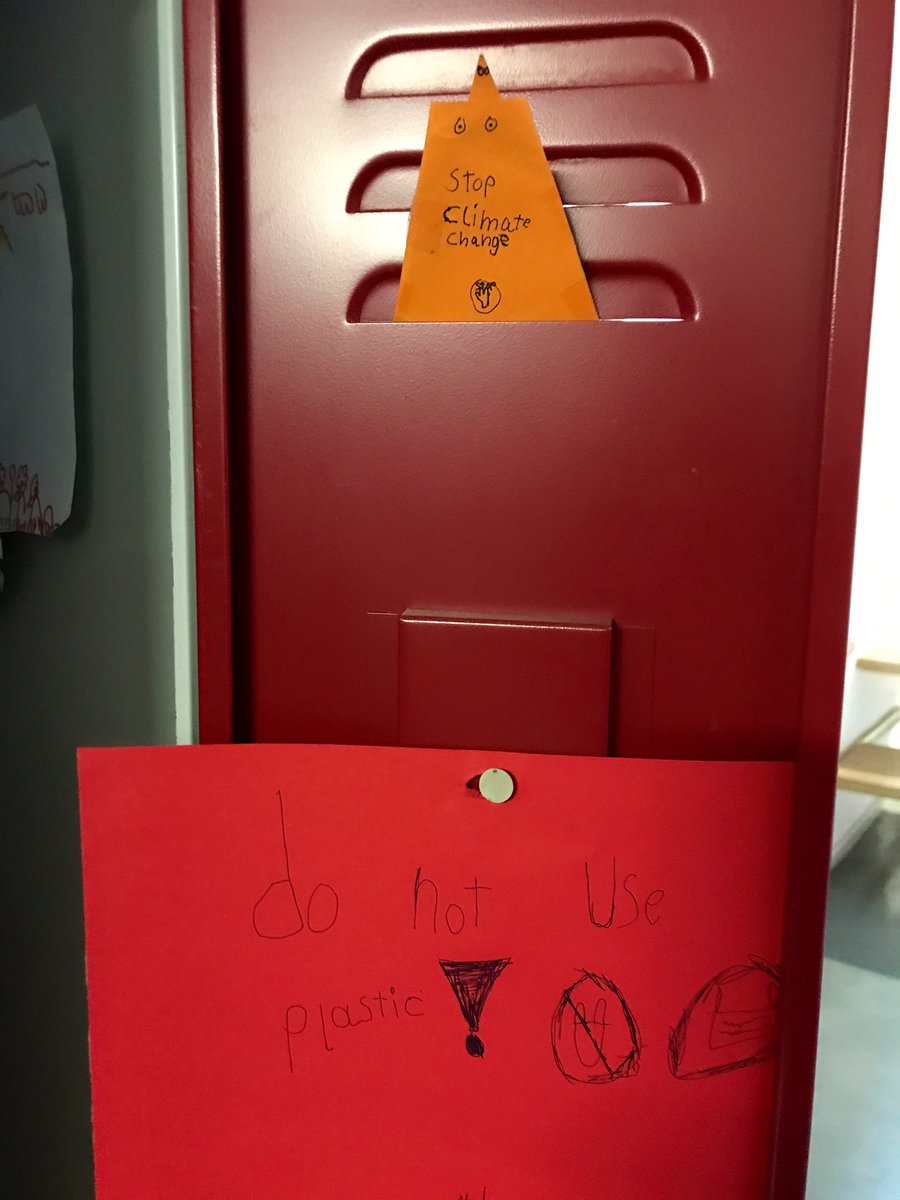 Stop
Climate
change
do not use
plastic!